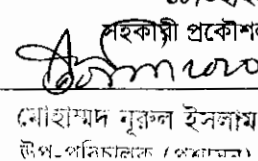 সহকারী প্রকৌশল
মোহাম্মদ নূরুল ইসলাম
উপ-পরিচালক (প্রশাসন)